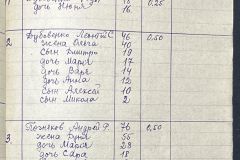 дочь Нюня 16 0,25
2 Дубовенко Леонтий С. 46 0,50
жена Ольга 40
сын Дмитро 19
дочь Мария 17
дочь Варя 14
дочь Анна 12
сын Алексей 10
сын Микола 2
3 Позняков Андрей Р. 76 0,50
жена 56
дочь Мария 28
дочь Сара 18